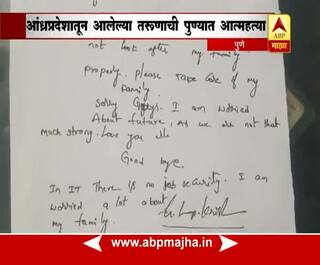 आंध्रप्रदेशातून आलेल्या तरूणाची पुण्यात आत्महत्या
abp
माझा
पुणे
not look after my family
properly. Please take care of my
family.
Sorry Guys. I am worried
About future. As we are not that
much strong. Love you all
Good bye.
In IT There is no job security. I am
worried a lot about
my family.
www.abpmajha.in